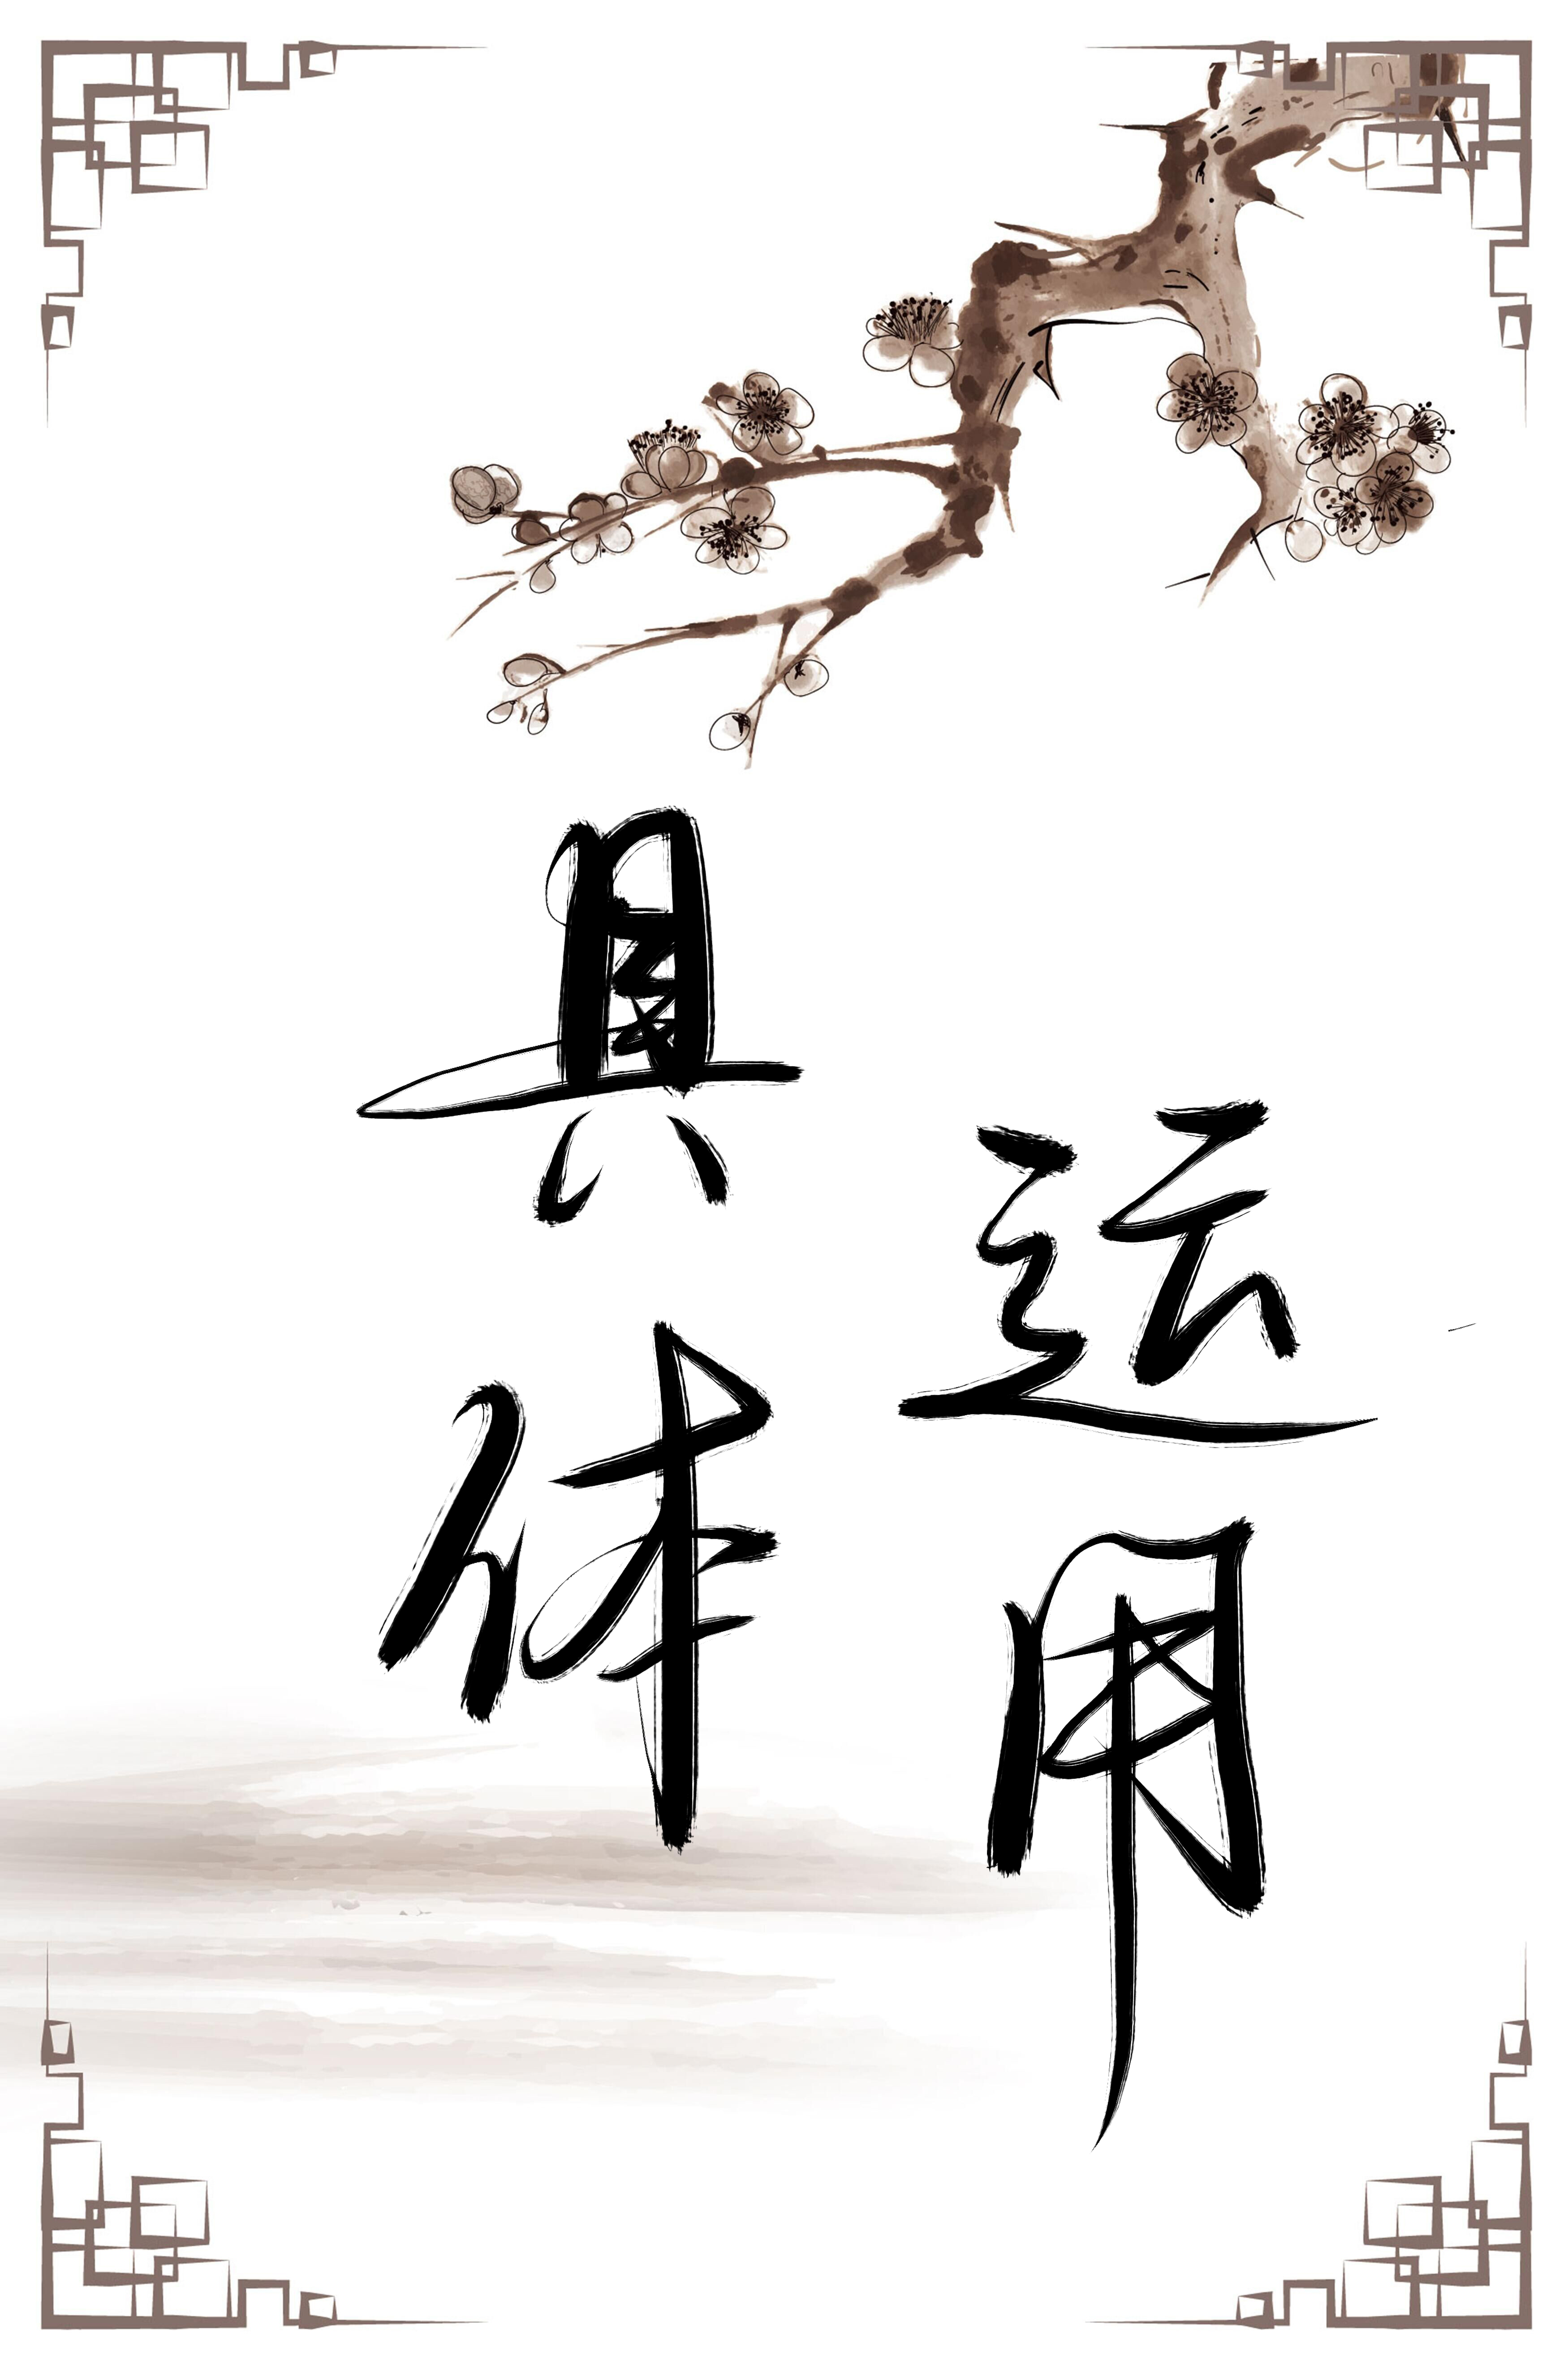 具体
运用